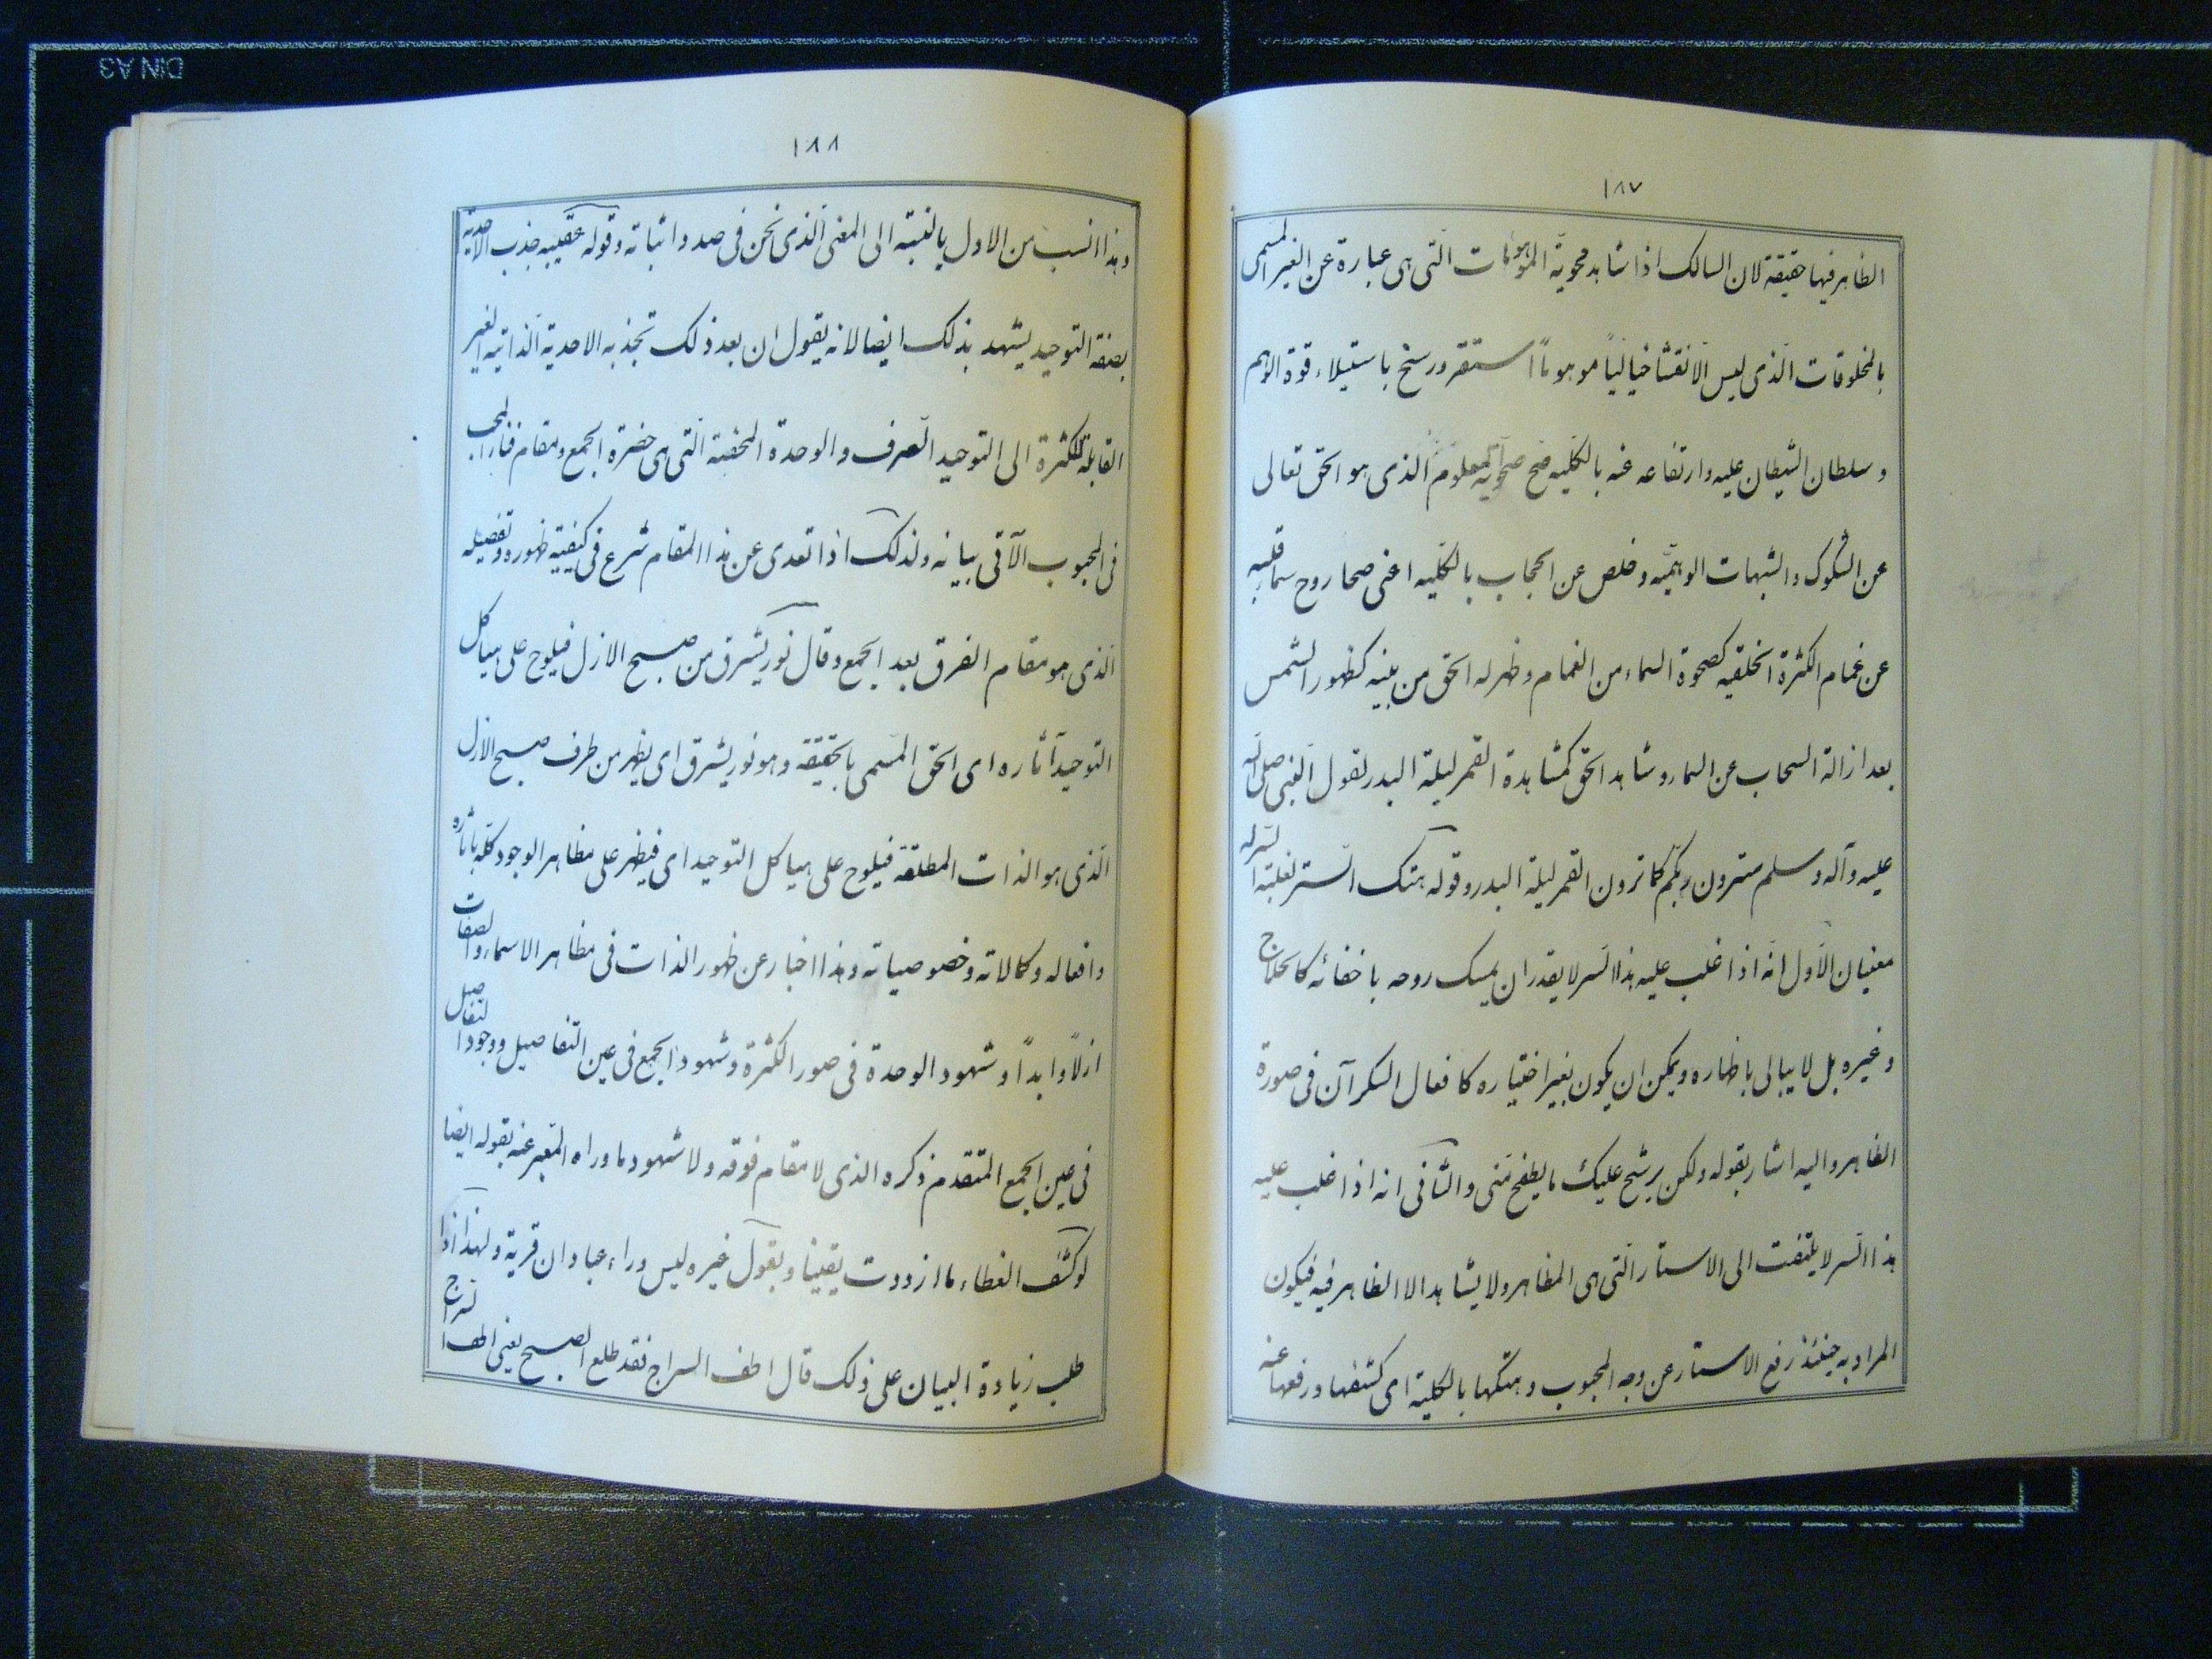 ١٨٧
الظاهر فيها حقيقة لان السالك اذا شاهد محوية الموهومات الّتى هى عبارة عن الغير المسمى
بالمخلوقات الّذى ليس الّا نقشا خياليّاً موهوماً استقر ورسخ باستيلاء قوة الوهم
وسلطان الشيطان عليه وارتفاعه عنه بالكليّه صح صحويّة المعلوم الّذى هو الحق تعالى
عن الشكوك والشبهات الوهميّه وخلص عن الحجاب بالكليه اعنى صحا روح سماء قلبه
عن غمام الكثرة الخلقيه كصحوة السماء من الغمام وظهر له الحق من بينه كظهور الشمس
بعد ازالة السحاب عن السماء وشاهد الحق كمشاهدة القمر ليلة البدر لقول النّبى صلى الله
عليه وآله وسلم سترون ربّكم كما ترون القمر ليلة البدر وقوله هتك السّتر لغلبة السّر له
معنيان الاوّل انّه اذا غلب عليه هذا السّر لا يقدر ان يمسك روحه باخفائه كالحلاج
وغيره بل لا يبالى باظهاره ويمكن ان يكون بغير اختياره كافعال السكرآن فى صورة
الظاهر واليه اشار بقوله ولكن يرشح عليك ما يطفح منّى والثّانى انه اذا غلب عليه
هذا السّر لا يلتفت الى الاستار الّتى هى المظاهر ولا يشاهد الا الظاهر فيه فيكون
المراد به حينئذ رفع الاستار عن وجه المحبوب وهتكها بالكلية اى كشفها ورفعها عنه
١٨٨
وهذا انسب من الاول بالنسبه الى المعنى الّذى نحن فى صدد اثباته وقوله عقيبه جذب الاحديّه
بصفة التوحيد يشهد بذلك ايضا لانه يقول ان بعد ذلك تجذبه الاحدية الّذاتيه الغير
القابلة للكثرة الى التوحيد الصّرف والوحدة المحضه الّتى هى حضرة الجمع ومقام فناء المحب
فى المحبوب الآتى بيانه ولذلك اذا تعدى عن هذا المقام شرع فى كيفيّه ظهوره وتفصيله
الّذى هو مقام الفرق بعد الجمع وقال نور يشرق من صبح الازل فيلوح على هياكل
التوحيد آثاره اى الحق المسّمى بالحقيقة وهو نور يشرق اى يظهر من طرف صبح الازل
الّذى هو الذات المطلقة فيلوح على هياكل التوحيد اى فيظهر على مظاهر الوجود كلّه باثاره
وافعاله وكمالاته وخصوصياته وهذا اخبار عن ظهور الذات فى مظاهر الاسماء والصفات
ازلاً وابداً وشهود الوحدة فى صور الكثرة وشهود الجمع فى عين التفاصيل ووجود التفاصيل
فى عين الجمع المتقدم ذكره الذى لا مقام فوقه ولا شهود ما وراه المعّبر عنه بقوله ايضا
لو كشف الغطاء ما ازددت يقينا وبقول غيره ليس وراء عبادان قرية ولهذا اذا
طلب زيادة البيان على ذلك قال اطف السراج فقد طلع الصبح يعنى اطف السّراج